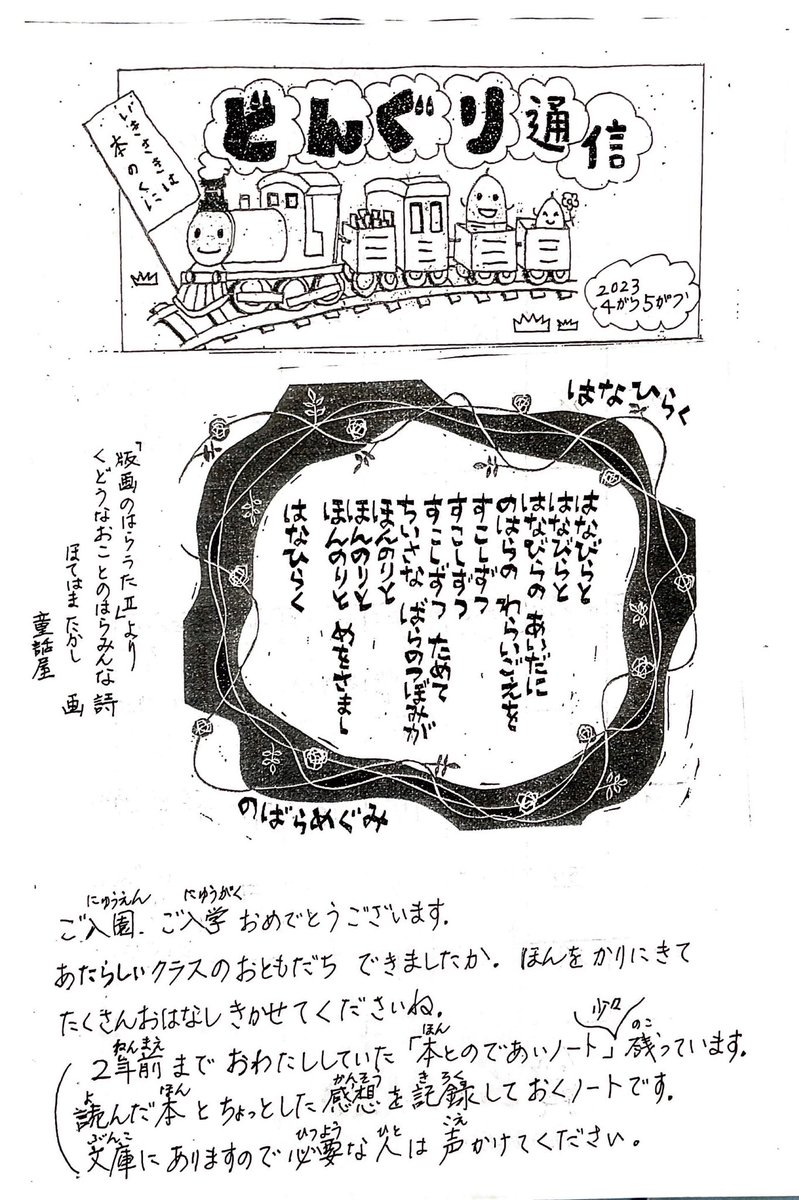 どんぐり通信
いきさきは
本のくに
2023
4がつ5がつ
はなひらく
はなびらと
はなびらと
はなびらの あいだに
のはらの わらいごえを
すこしずつ
すこしずつ
すこしずつ ためて
ちいさな ばらのつぼみが
ほんのりと
ほんのりと
ほんのりと めをさまし
はなひらく
のばらめぐみ
「版画のはらうたⅡ」より
くどうなおことのはらみんな 詩
ほてはまたかし 画
童話屋
ご入園、ご入学 おめでとうございます。
にゅうえん にゅうがく
あたらしいクラスのおともだち できましたか。ほんをかりにきて
たくさんおはなし きかせてくださいね。
2年前まで おわたししていた「本とのであいノート」少々残っています。
ねんまえ ほん のこ
読んだ本とちょっとした感想を記録しておくノートです。
よ ほん かんそう きろく
文庫にありますので必要な人は声かけてください。
ぶんこ ひつよう ひと こえ